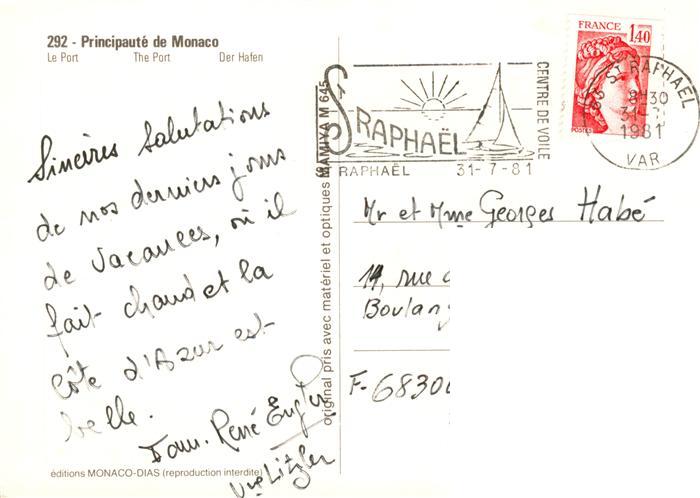 292 - Principauté de Monaco
Le Port The Port Der Hafen
Sincères Salutations
de nos derniers jours
de Vacances, où il
fait chaud et la
Côte d'Azur est
belle.
Fam. René
éditions MONACO-DIAS (reproduction interdite)
original pris avec matériel et optiques MAMIYA M 645
St RAPHAËL
CENTRE DE VOILE
RAPHAËL 31-7-81
FRANCE 1,40
POSTES
ST RAPHAEL
8H30
31-7
1981
VAR
Mr et Mme Georges Habé
14, rue
Boulang
F-6830